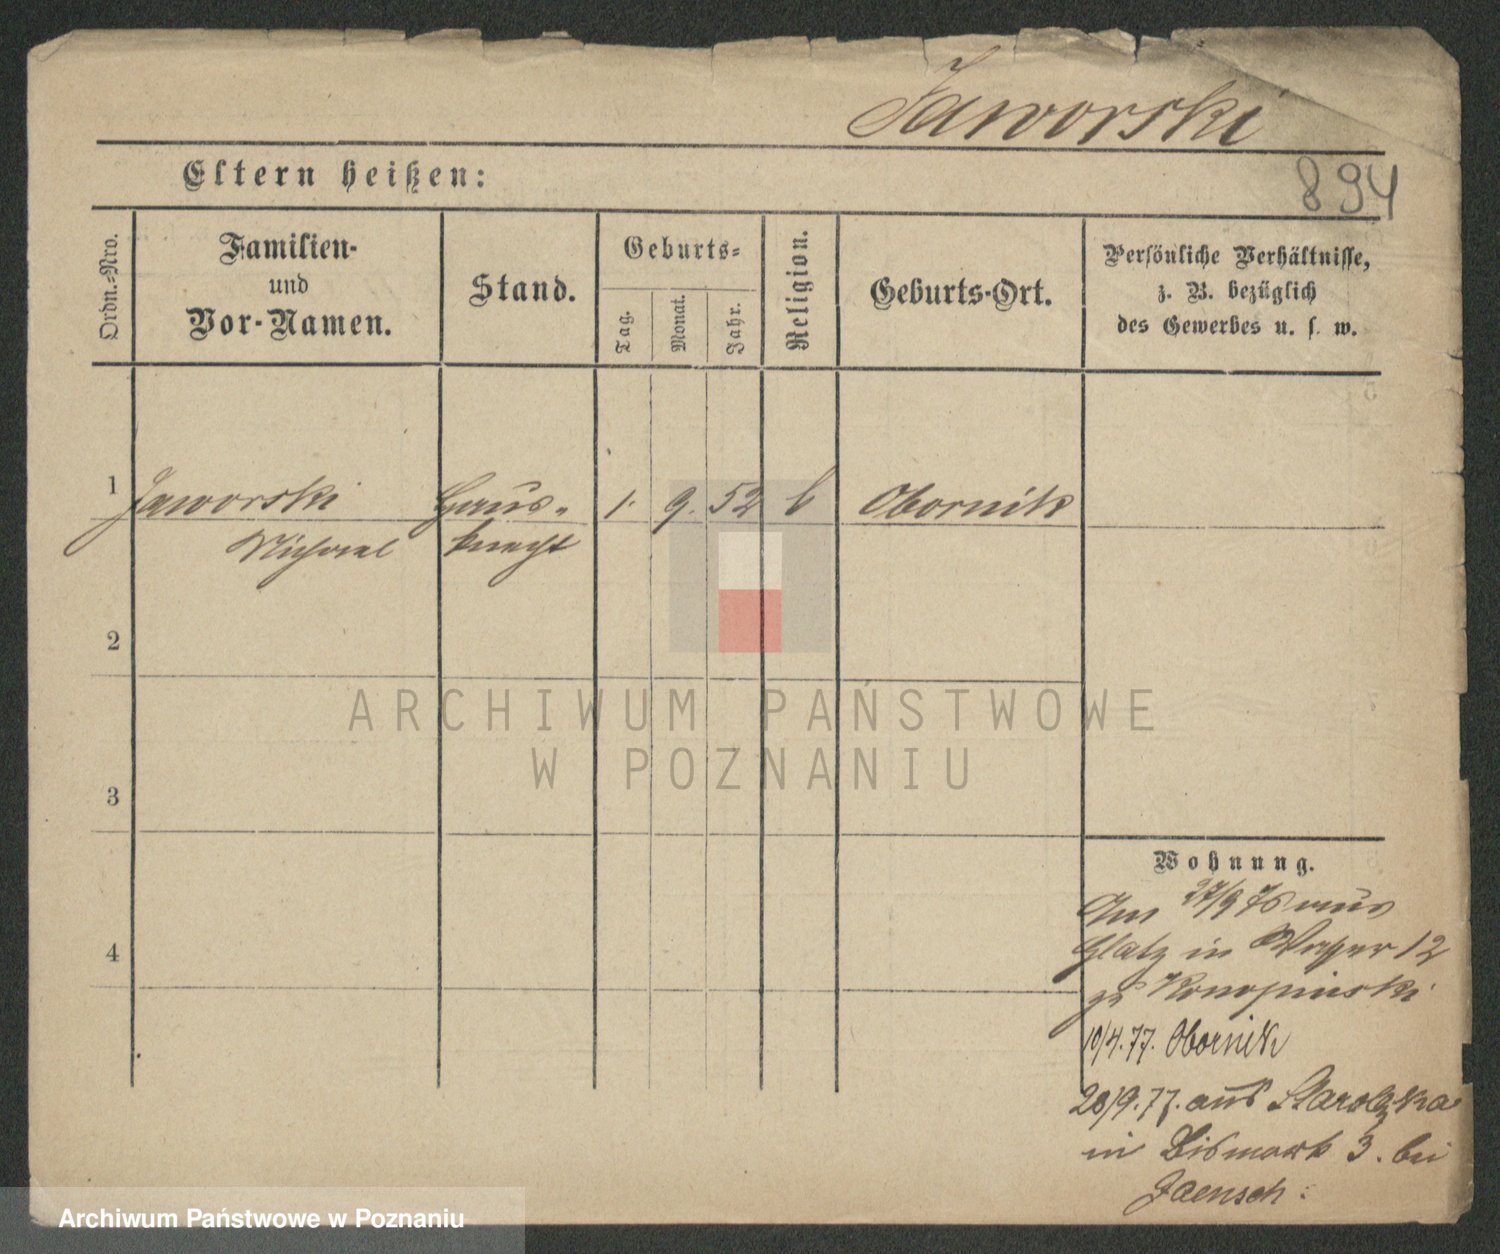 Jaworski
894
Eltern heißen:
Ordn.-Nro.
Familien-
und
Vor-Namen.
Stand.
Geburts-
Tag.
Monat.
Jahr.
Religion.
Geburts-Ort.
Persönliche Verhältnisse,
z. B. bezüglich
des Gewerbes u. s. w.
1 Jaworski Haus- 1. 9. 52 k Obornik
Michael knecht
2
3
4
Wohnung.
Am 27/9 76 aus
Glatz in Wasser 12
zu Konopinski
10/4.77. Obornik
28/9.77. aus Starolęka
in Bismark 3. bei
Jaensch.
ARCHIWUM PAŃSTWOWE
W POZNANIU
Archiwum Państwowe w Poznaniu